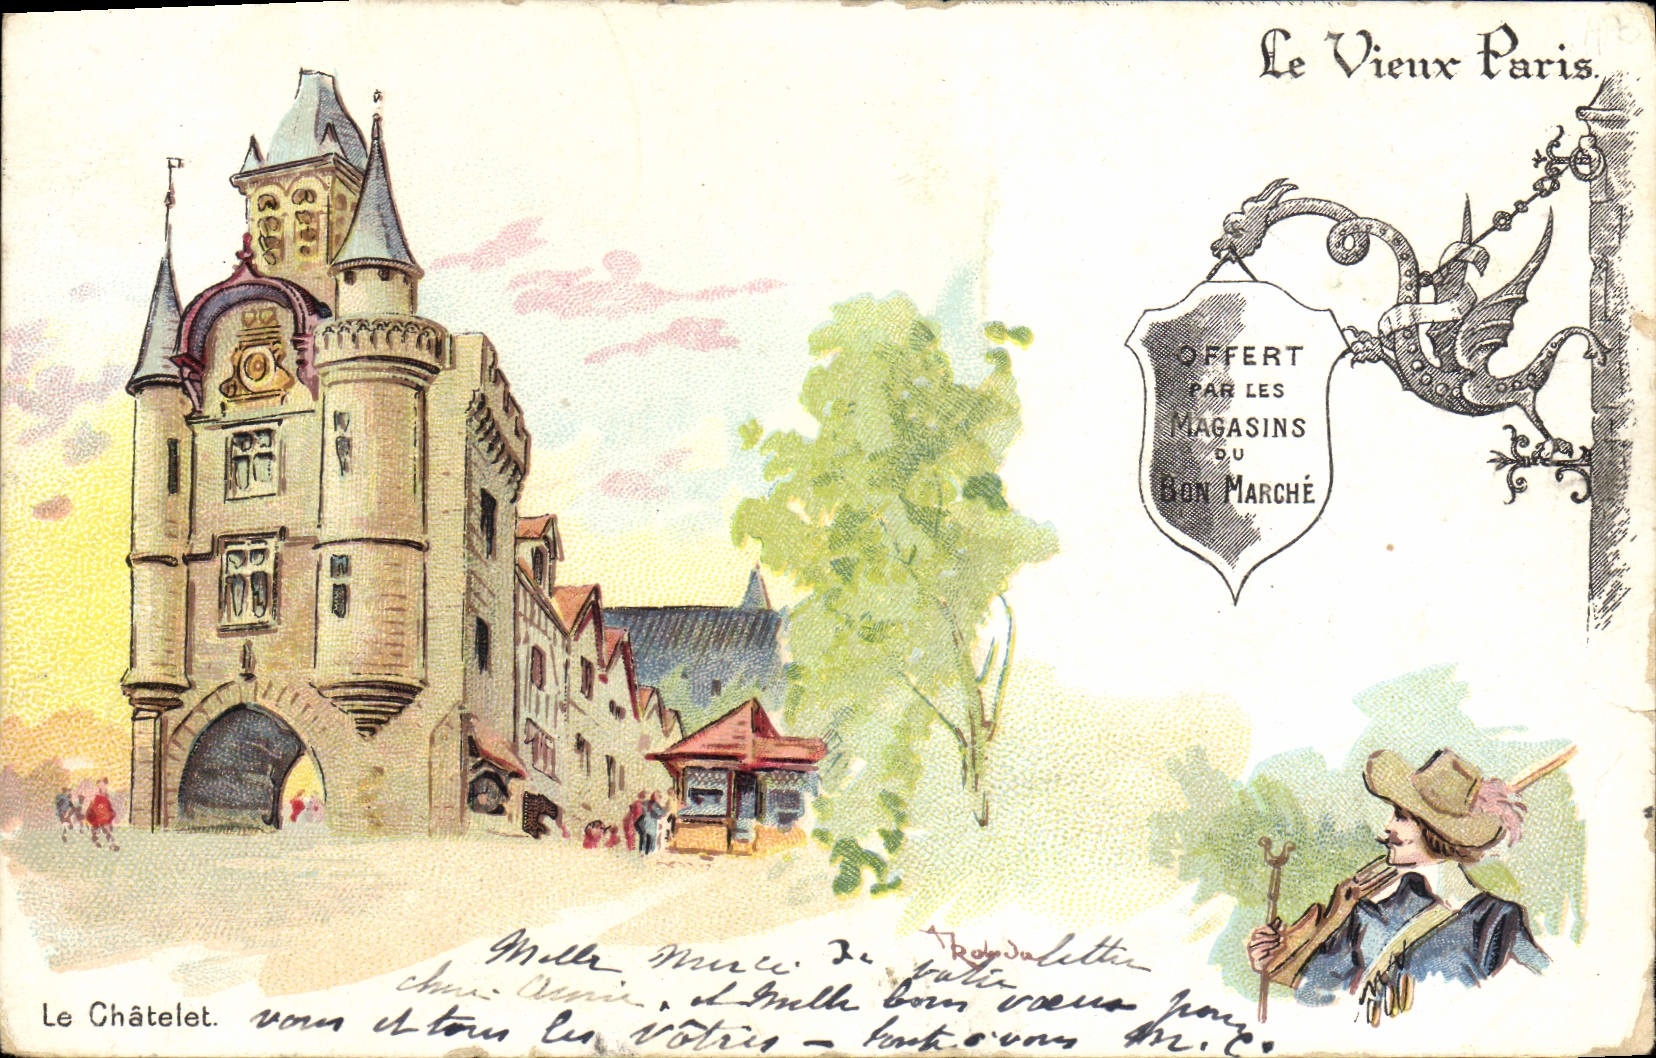 Le Vieux Paris.
OFFERT
PAR LES
MAGASINS
DU
BON MARCHÉ
A Robida
Mille merci de votre lettre
chère Annie, et mille bons vœux pour
Le Châtelet.
vous et tous les vôtres – toute à vous M. C.